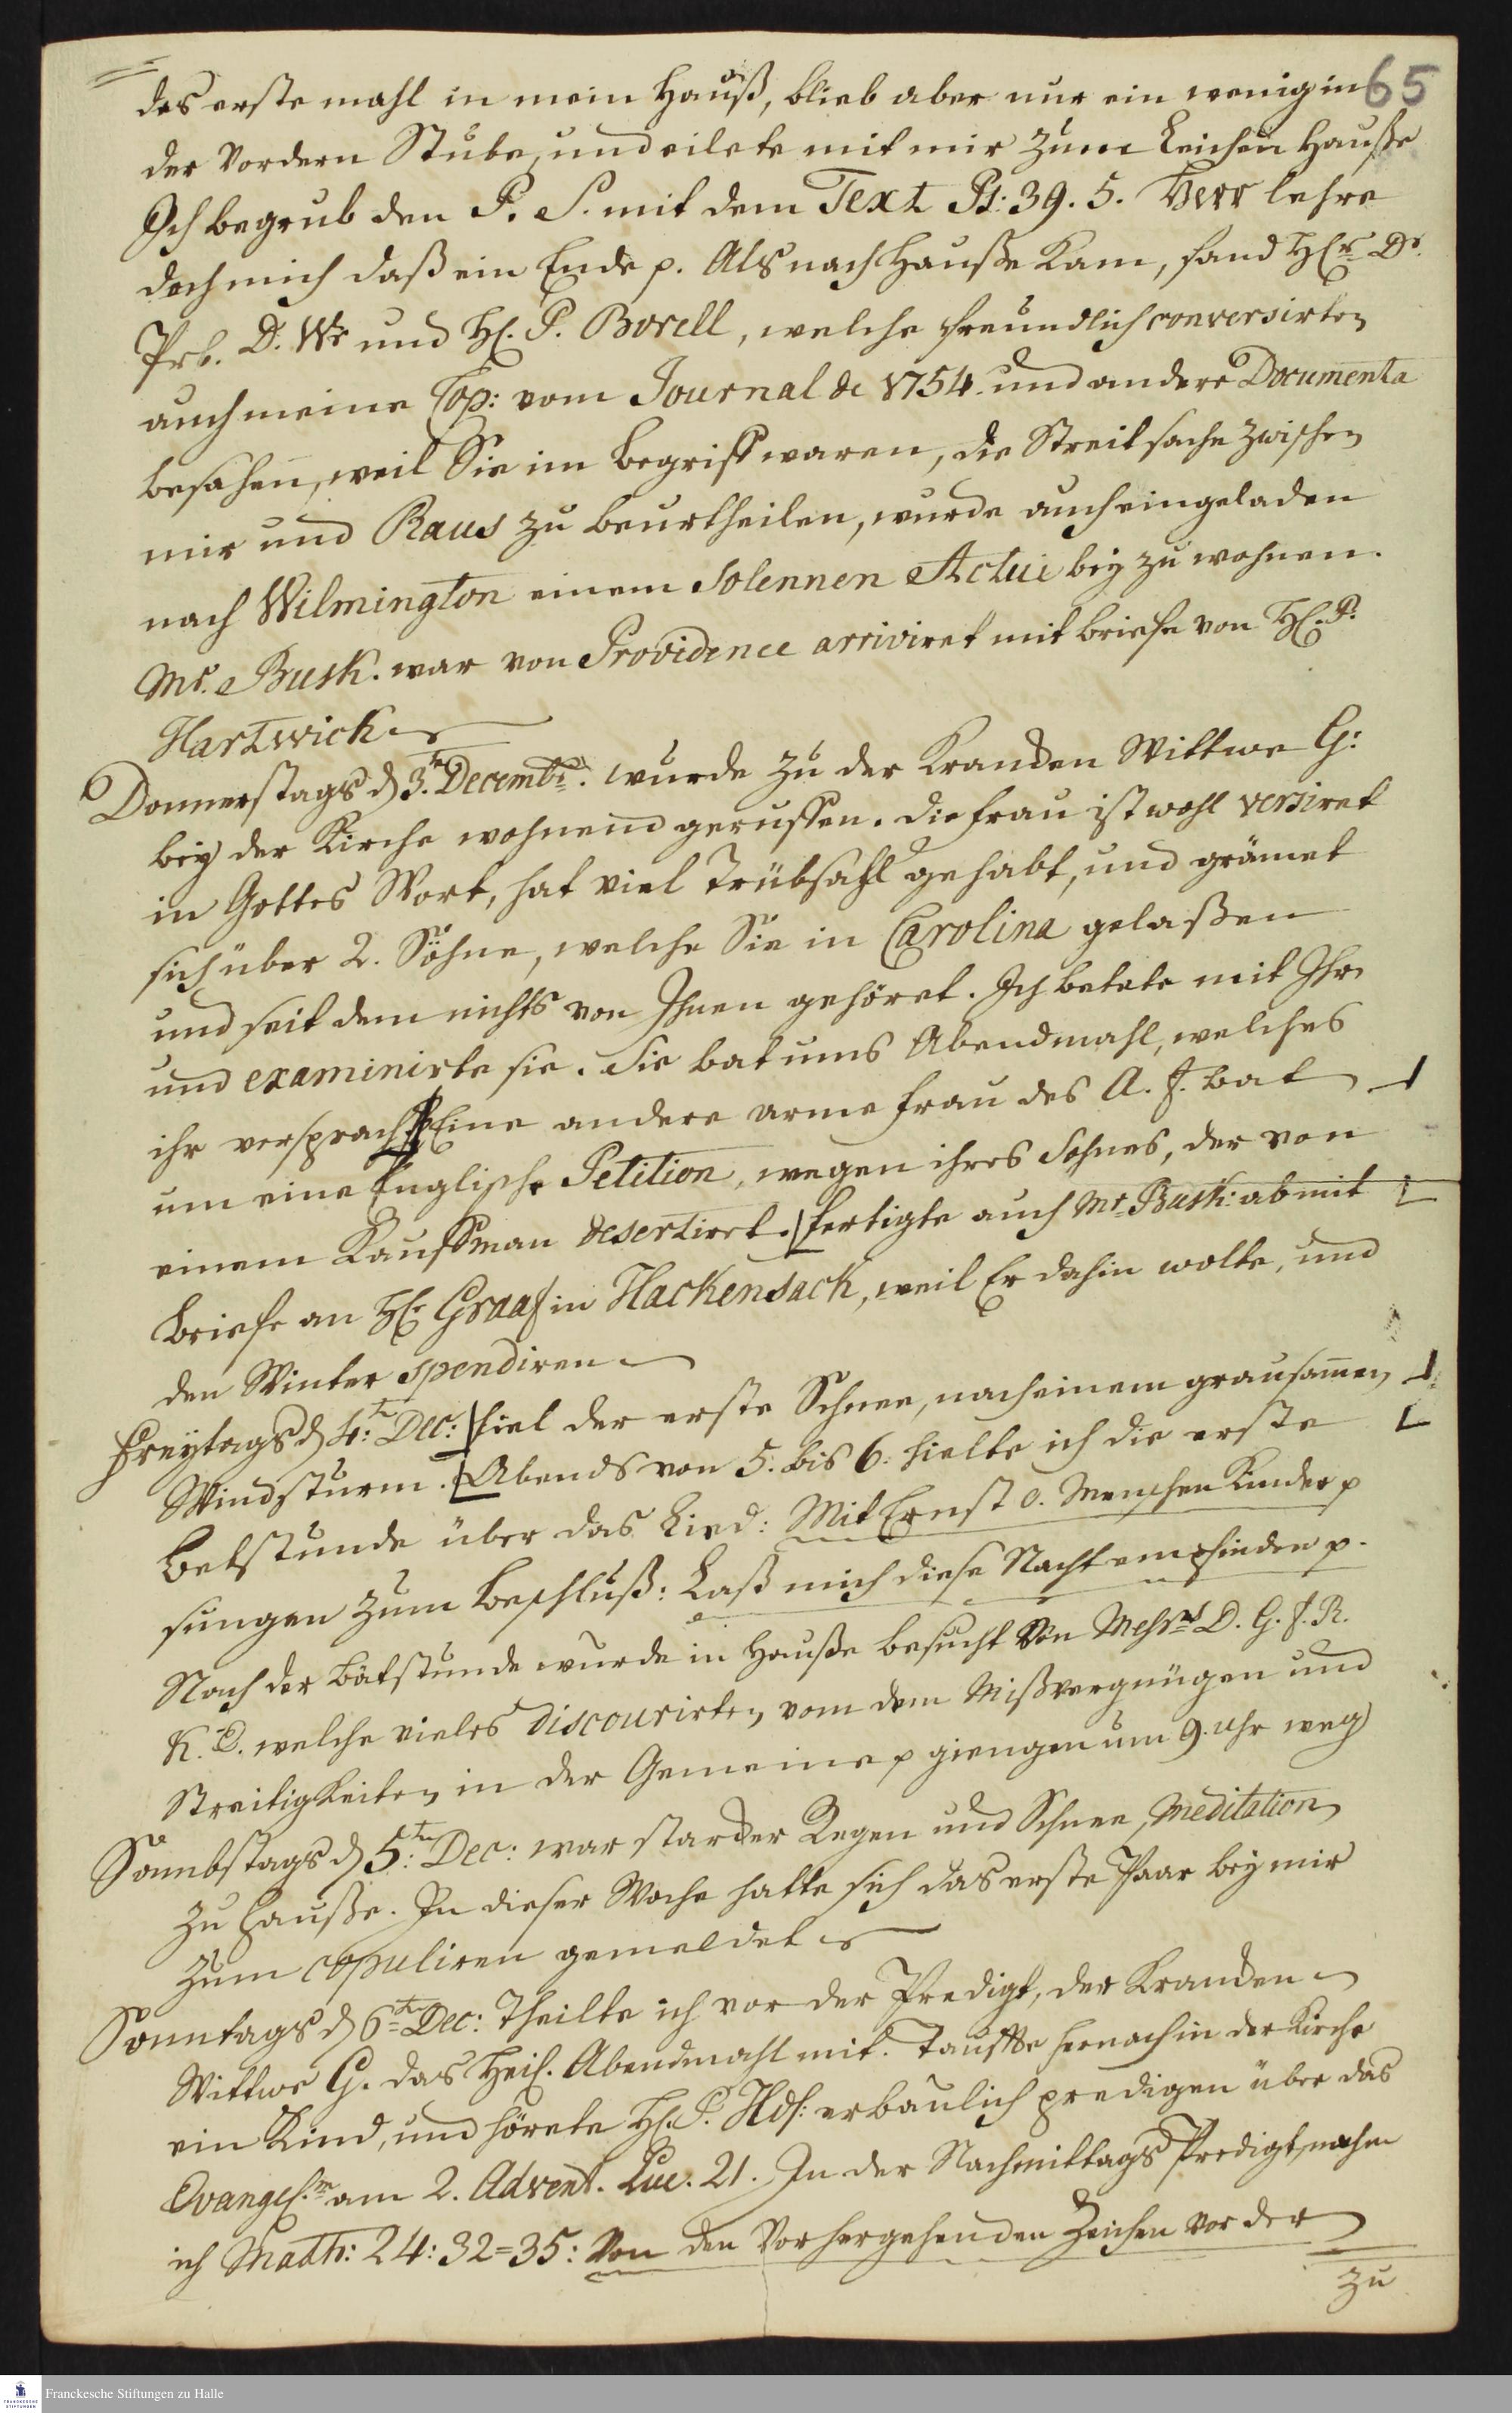 65
das erste mahl in mein Hauß, blieb aber nur ein wenig in
der Vordern Stube, und eilete mit mir zum Leichen Hauße
Ich begrub den P. S. mit dem Text Ps: 39. 5. HErr lehre
doch mich daß ein Ende p. Als nach Hauße kam, fand H. Dr.
Prb. D. Wr und H. P. Borell, welche freundlich conversirten
auch meine Cop: vom Journal de 1754. und andere Documenta
besahen, weil Sie im Begriff waren, die Streitsache zwischen
mir und Raus zu beurtheilen, wurde auch eingeladen
nach Wilmington einem Solennen Actui bey zu wohnen.
Mr. Busk. war von Providence arriviret mit briefe von H. P.
Hartwick
Donnerstags d 3.ten Decembr. wurde zu der Krancken Wittwe G:
bey der Kirche wohnend geruffen. Die frau ist wohl versiret
in Gottes Wort, hat viel Trübsahl gehabt, und grämet
sich über 2. Söhne, welche Sie in Carolina gelaßen
und seit dem nichts von Ihnen gehöret. Ich betete mit Ihr
und examinirte sie. Sie bat ums Abendmahl, welches
ihr versprach. Eine andere arme frau des A. F. bat
um eine Englische Petition, wegen ihres Sohnes, der von
einem Kauffman desertiret. fertigte auch Mr. Busk: ab mit
Briefe an H. Graaf in Hackensack, weil Er dahin wolte, und
den Winter spendiren
Freytags d 4:ten Dec: fiel der erste Schnee, nach einem grausamen
Windsturm. Abends von 5. bis 6. hielte ich die erste
Betstunde über das Lied: Mit Ernst o. Menschen Kinder p
sungen zum Beschluß: Laß mich diese Nacht empfinden p.
Nach der Bätstunde wurde in Hauße besucht Von Messrs D. G. F. R.
K. D. welche vieles discourirten vom dem Mißvergnügen und
Streitigkeiten in der Gemeine p giengen um 9. uhr weg
Sonnbstags d 5:ten Dec: war starcker Regen und Schnee, Meditation
zu Hauße. In dieser Woche hatte sich das erste Paar bey mir
zum copuliren gemeldet
Sonntags d 6ten Dec: Theilte ich vor der Predigt, der Krancken
Wittwe G. das Heil. Abendmahl mit. Tauffte hernach in der Kirche
ein Kind, und hörete H. P. Hds: erbaulich predigen über das
Evangel.m am 2. Advent. Luc. 21. In der Nachmittags Predigt, nahm
ich Matth: 24: 32=35: Von den Vorhergehenden Zeichen vor der
zu
Franckesche Stiftungen zu Halle